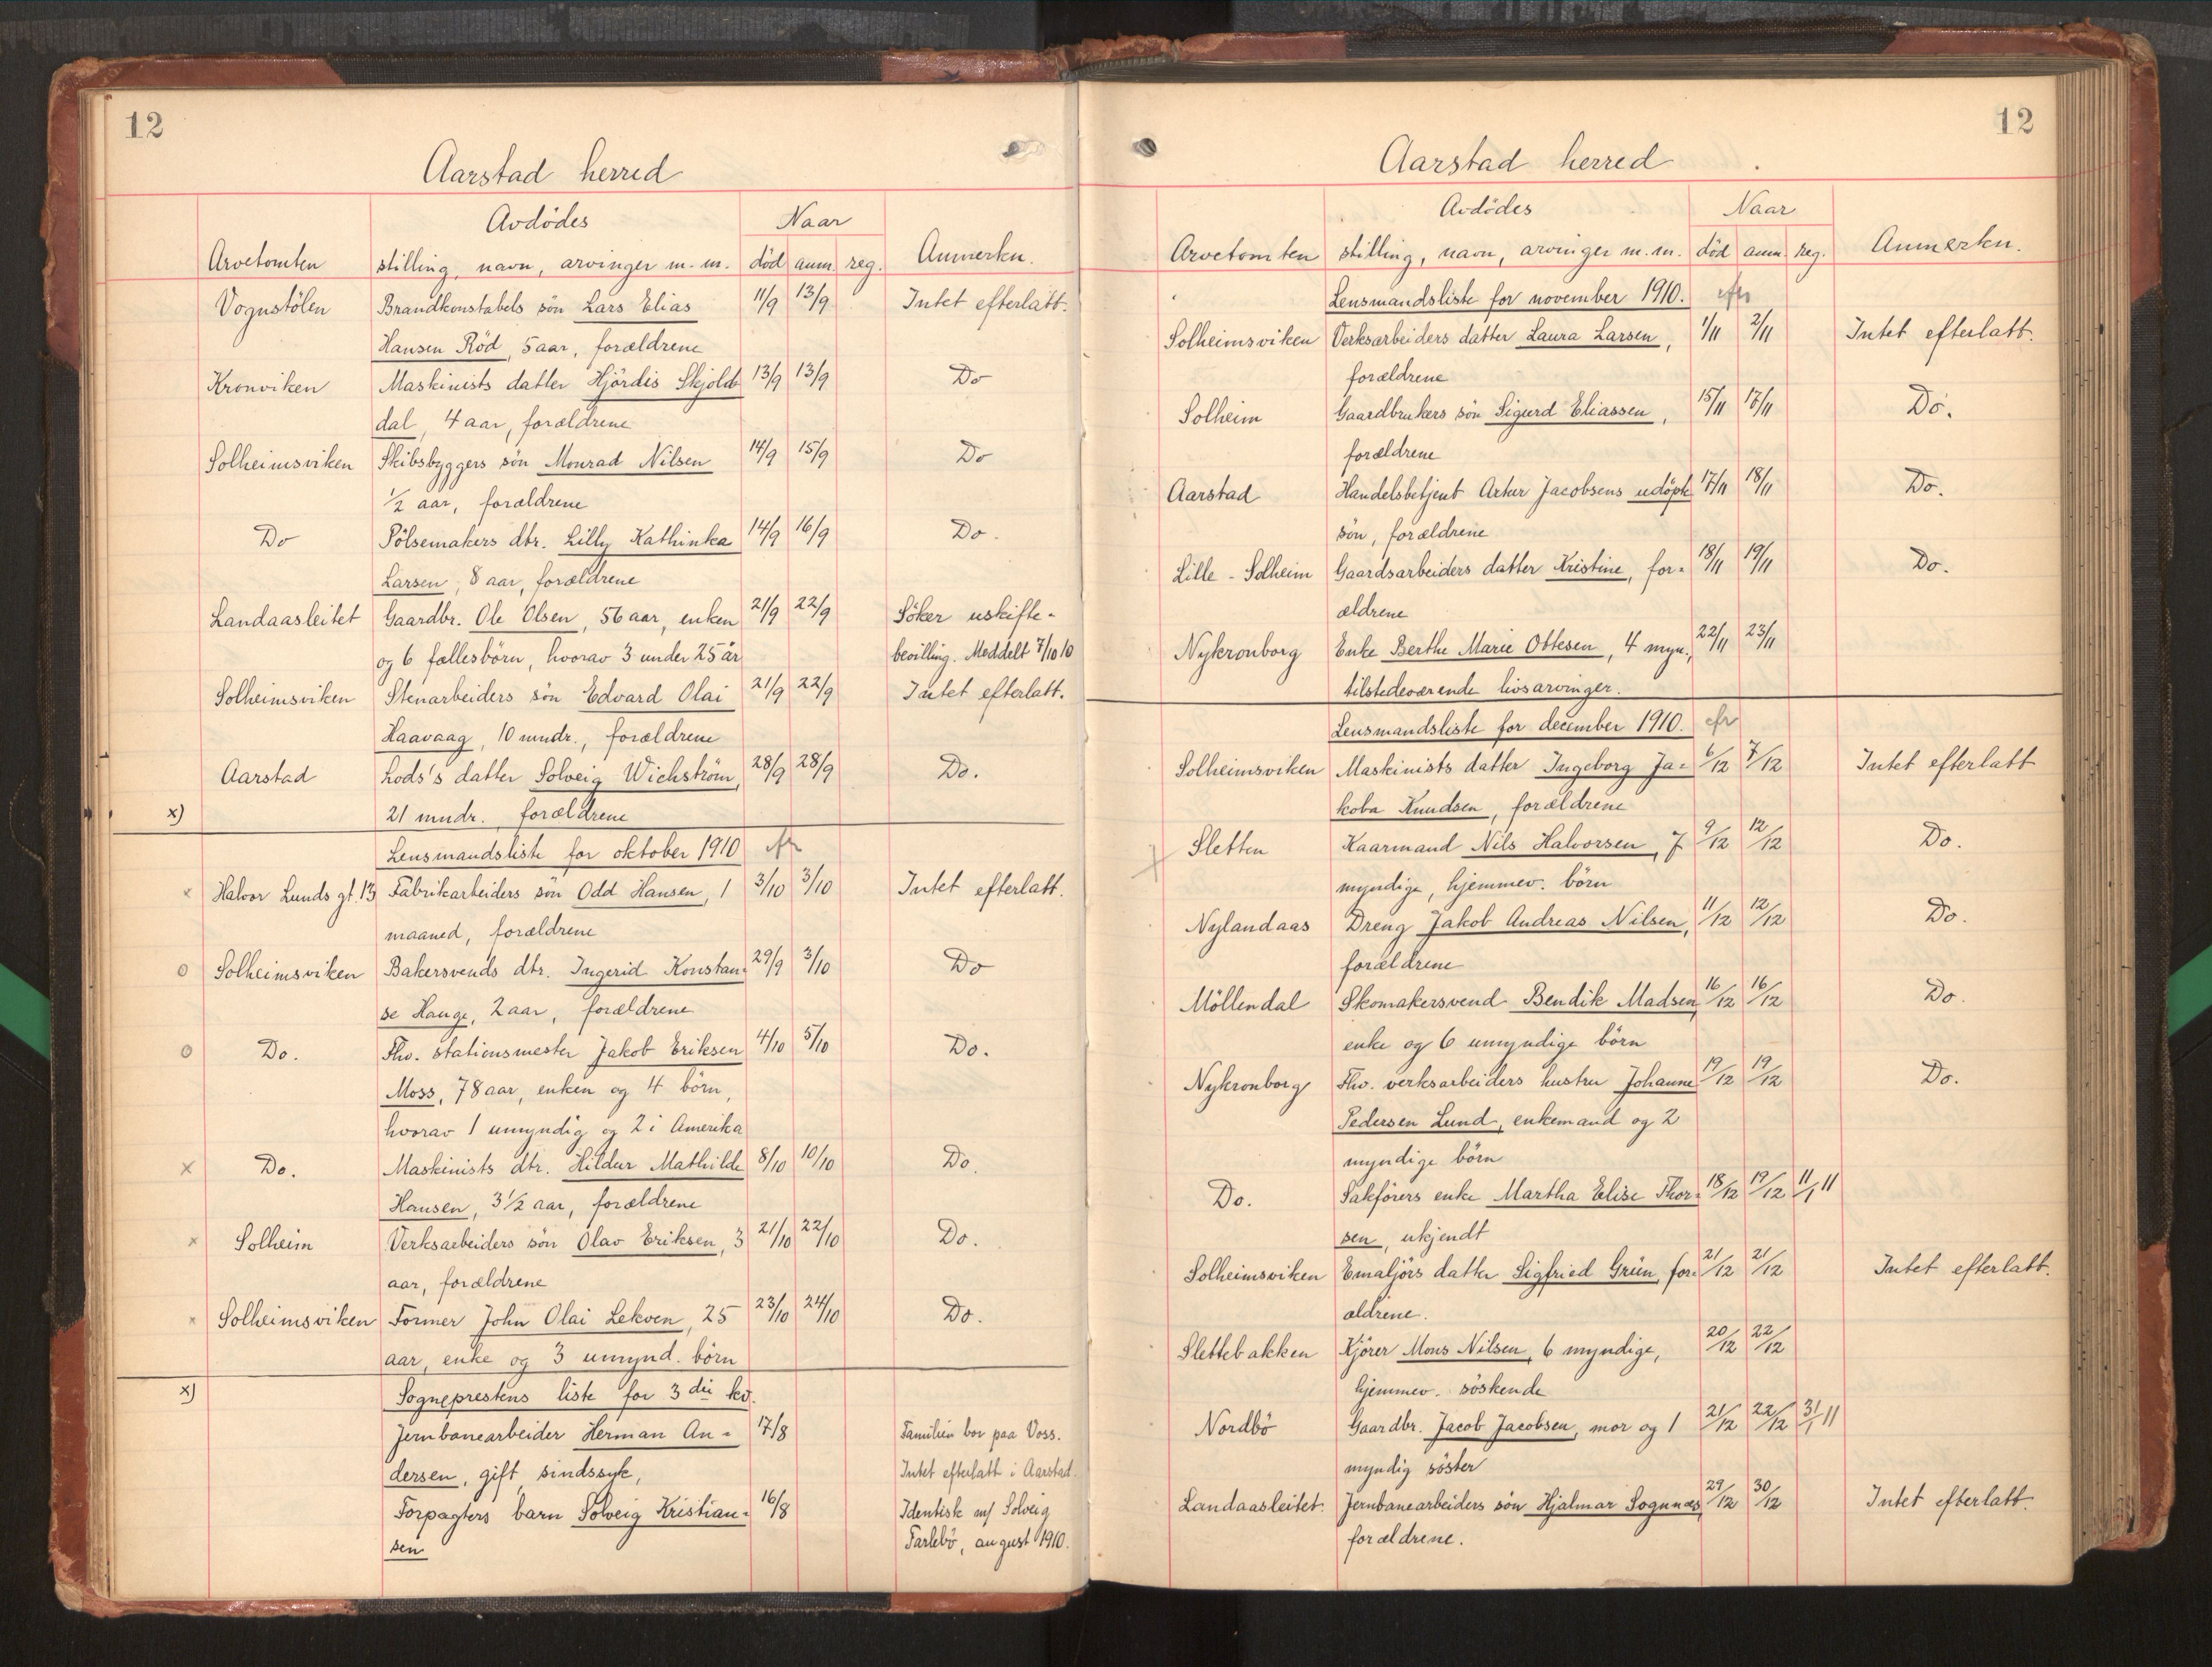 12
Aarstad herred
Avdödes
Naar
Arvetomten stilling, navn, arvinger m. m. död anm. reg. Anmerkn.
Vognstölen Brandkonstabels sön Lars Elias 11/9 13/9 Intet efterlatt.
Hansen Röd, 5 aar, forældrene
Kronviken Maskinists datter Hjördis Skjold- 13/9 13/9 Do
dal, 4 aar, forældrene
Solheimsviken Skibsbyggers sön Monrad Nilsen 14/9 15/9 Do
1/2 aar, forældrene
Do Pölsemakers dtr. Lilly Kathinka 14/9 16/9 Do.
Larsen, 8 aar, forældrene
Landaasleitet Gaardbr. Ole Olsen, 56 aar, enken 21/9 22/9 Söker uskifte-
og 6 fællesbörn, hvorav 3 under 25 år bevilling. Meddelt 7/10 10
Solheimsviken Stenarbeiders sön Edvard Olai 21/9 22/9 Intet efterlatt.
Haavaag, 10 mndr., forældrene
Aarstad Lods's datter Solveig Wichström, 28/9 28/9 Do.
x) 21 mndr. forældrene
Lensmandsliste for oktober 1910 efr
x Halvor Lunds gt. 13 Fabrikarbeiders sön Odd Hansen, 1 3/10 3/10 Intet efterlatt.
maaned, forældrene
o Solheimsviken Bakersvends dtr. Ingerid Konstan- 29/9 3/10 Do
se Hauge, 2 aar, forældrene
o Do. Fhv. stationsmester Jakob Eriksen 4/10 5/10 Do.
Moss, 78 aar, enken og 4 börn,
hvorav 1 umyndig og 2 i Amerika
x Do. Maskinists dtr. Hildur Mathilde 8/10 10/10 Do.
Hansen, 3 1/2 aar, forældrene
x Solheim Verksarbeiders sön Olav Eriksen, 3 21/10 22/10 Do.
aar, forældrene
x Solheimsviken Former John Olai Lekven, 25 23/10 24/10 Do.
aar, enke og 3 umynd. börn
x) Sogneprestens liste for 3die kv.
Jernbanearbeider Herman An- 17/8 Familien bor paa Voss.
dersen, gift, sindssyk, Intet efterlatt i Aarstad.
Forpagters barn Solveig Kristian- 16/8 Identisk m/ Solveig
sen Farlebö, august 1910.
12
Aarstad herred
Avdödes
Naar
Arvetomten stilling, navn, arvinger m. m. död anm. reg. Anmerkn.
Lensmandsliste for november 1910. efr
Solheimsviken Verksarbeiders datter Laura Larsen, 1/11 2/11 Intet efterlatt.
forældrene
Solheim Gaardbrukers sön Sigurd Eliassen, 15/11 17/11 Do.
forældrene
Aarstad Handelsbetjent Artur Jacobsens udöpte 17/11 18/11 Do.
sön, forældrene
Lille-Solheim Gaardsarbeiders datter Kristine, for- 18/11 19/11 Do.
ældrene
Nykronborg Enke Berthe Marie Ottesen, 4 myn., 22/11 23/11
tilstedeværende livsarvinger.
Lensmandsliste for december 1910. efr
Solheimsviken Maskinists datter Ingeborg Ja- 6/12 7/12 Intet efterlatt
koba Knudsen, forældrene
Sletten Kaarmand Nils Halvorsen, 7 9/12 12/12 Do.
myndige, hjemmev. börn
Nylandaas Dreng Jakob Andreas Nilsen, 11/12 12/12 Do.
forældrene
Möllendal Skomakersvend Bendik Madsen, 16/12 16/12 Do.
enke og 6 umyndige börn
Nykronborg Fhv. verksarbeiders hustru Johanne 19/12 19/12 Do.
Pedersen Lund, enkemand og 2
myndige börn
Do. Sakförers enke Martha Elise Thor- 18/12 19/12 11/1 11
sen, ukjendt
Solheimsviken Emaljörs datter Sigfried Grün, for- 21/12 21/12 Intet efterlatt.
ældrene.
Slettebakken Kjörer Mons Nilsen, 6 myndige, 20/12 22/12
hjemmev. söskende
Nordbö Gaardbr. Jacob Jacobsen, mor og 1 21/12 22/12 31/1 11
myndig söster
Landaasleitet. Jernbanearbeiders sön Hjalmar Sognnæs, 29/12 30/12 Intet efterlatt.
forældrene.